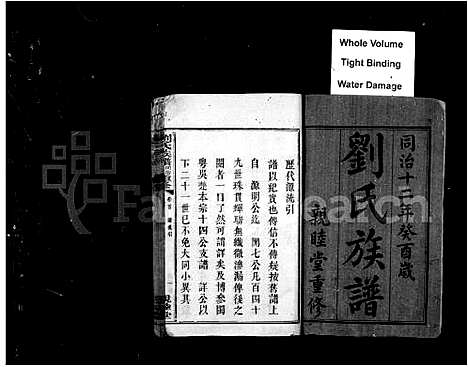 Whole Volume
Tight Binding
Water Damage
同治十二年癸酉歲
劉氏族譜
親睦堂重修
歷代源流引
譜以紀實也傳信不傳疑按舊譜上
自 源明公迄 閏七公凡百四十
九世珠貫繩聯無纖微滲漏俾後之
閱者一目了然可謂詳矣及博參閩
粵吳楚本宗十四公支譜 詳公以
下二十一世已不免大同小異其
FamilySearch